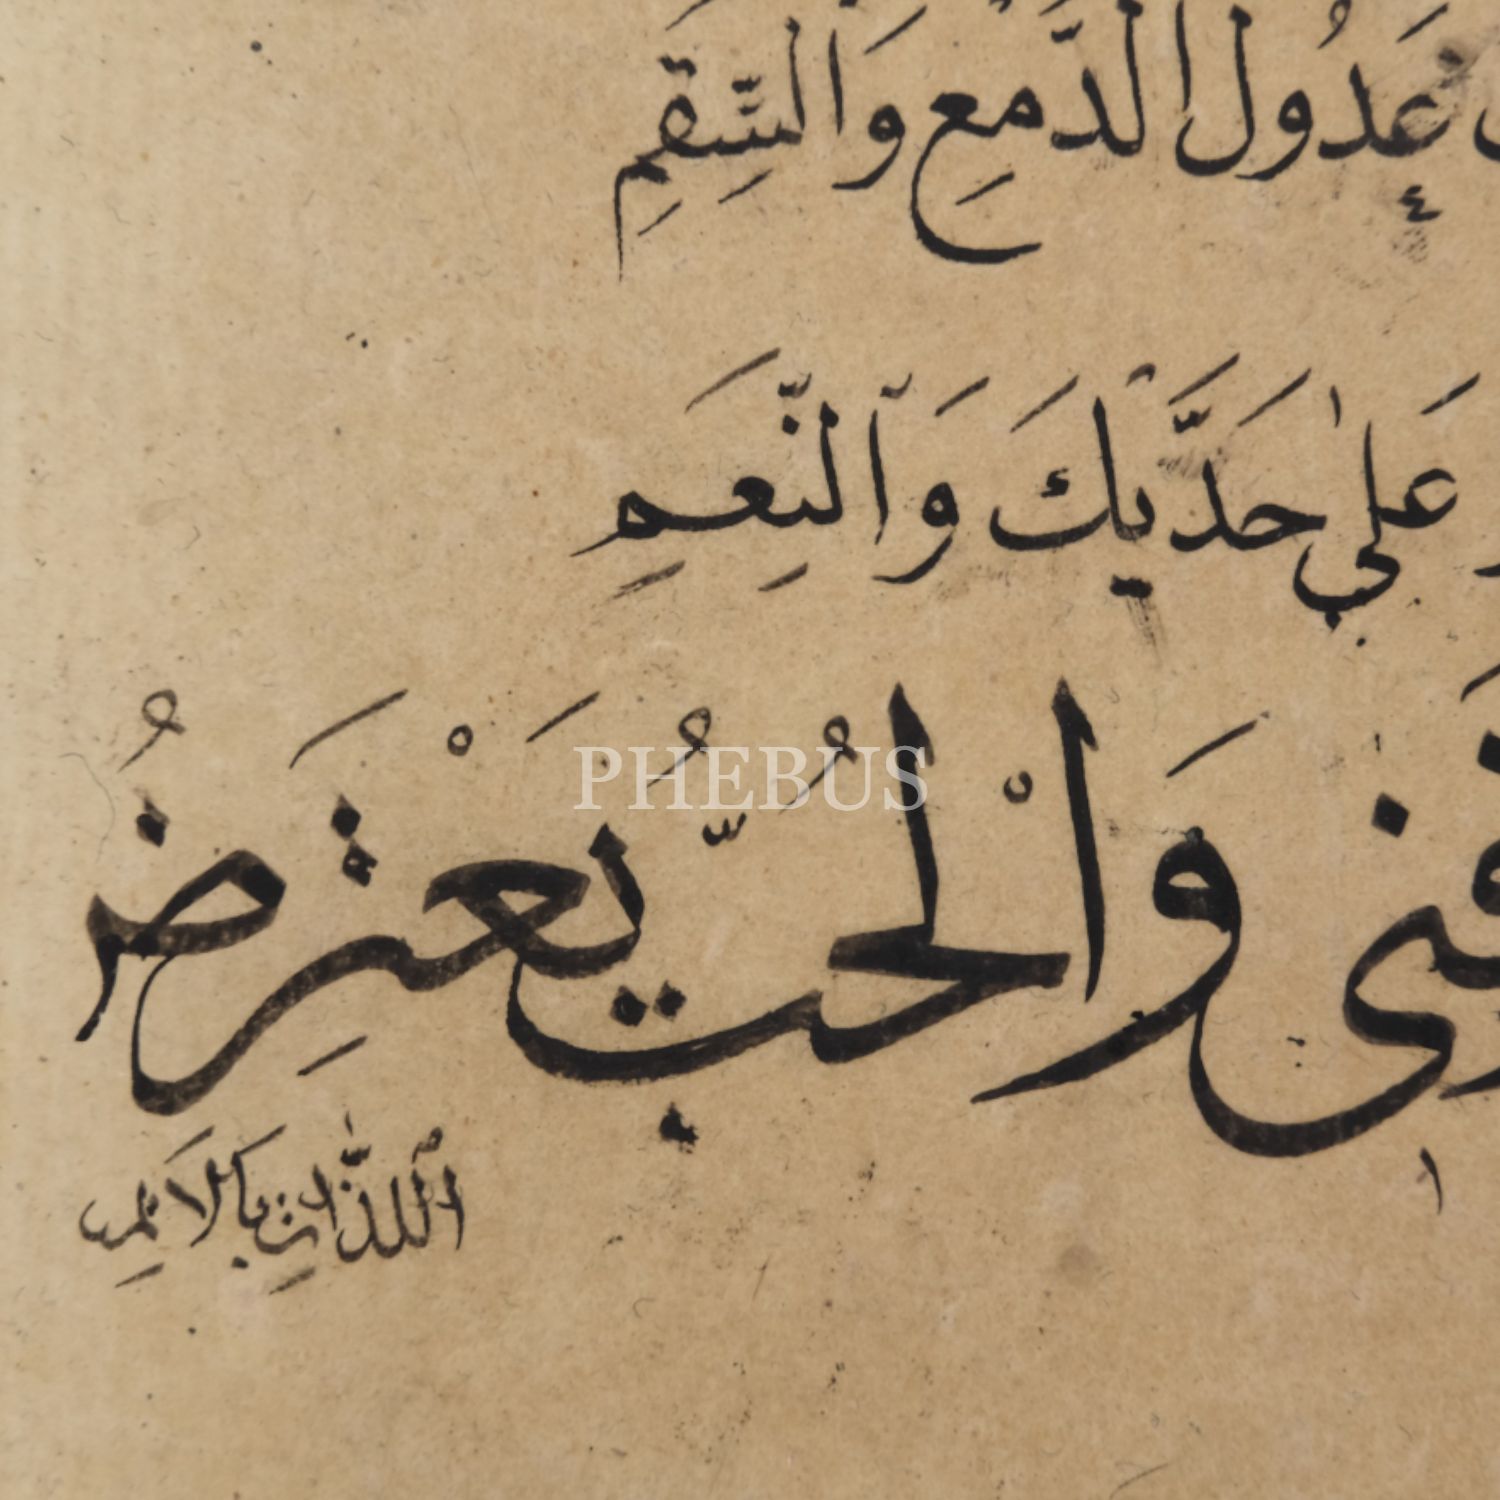 عُدُولُ الدَّمْعِ وَالسَّقَمِ
عَلَى خَدَّيْكَ وَالنِّعَمِ
PHEBUS
وَالْحُبُّ يَعْتَرِضُ
اللَّذَّاتِ بِالْأَلَمِ